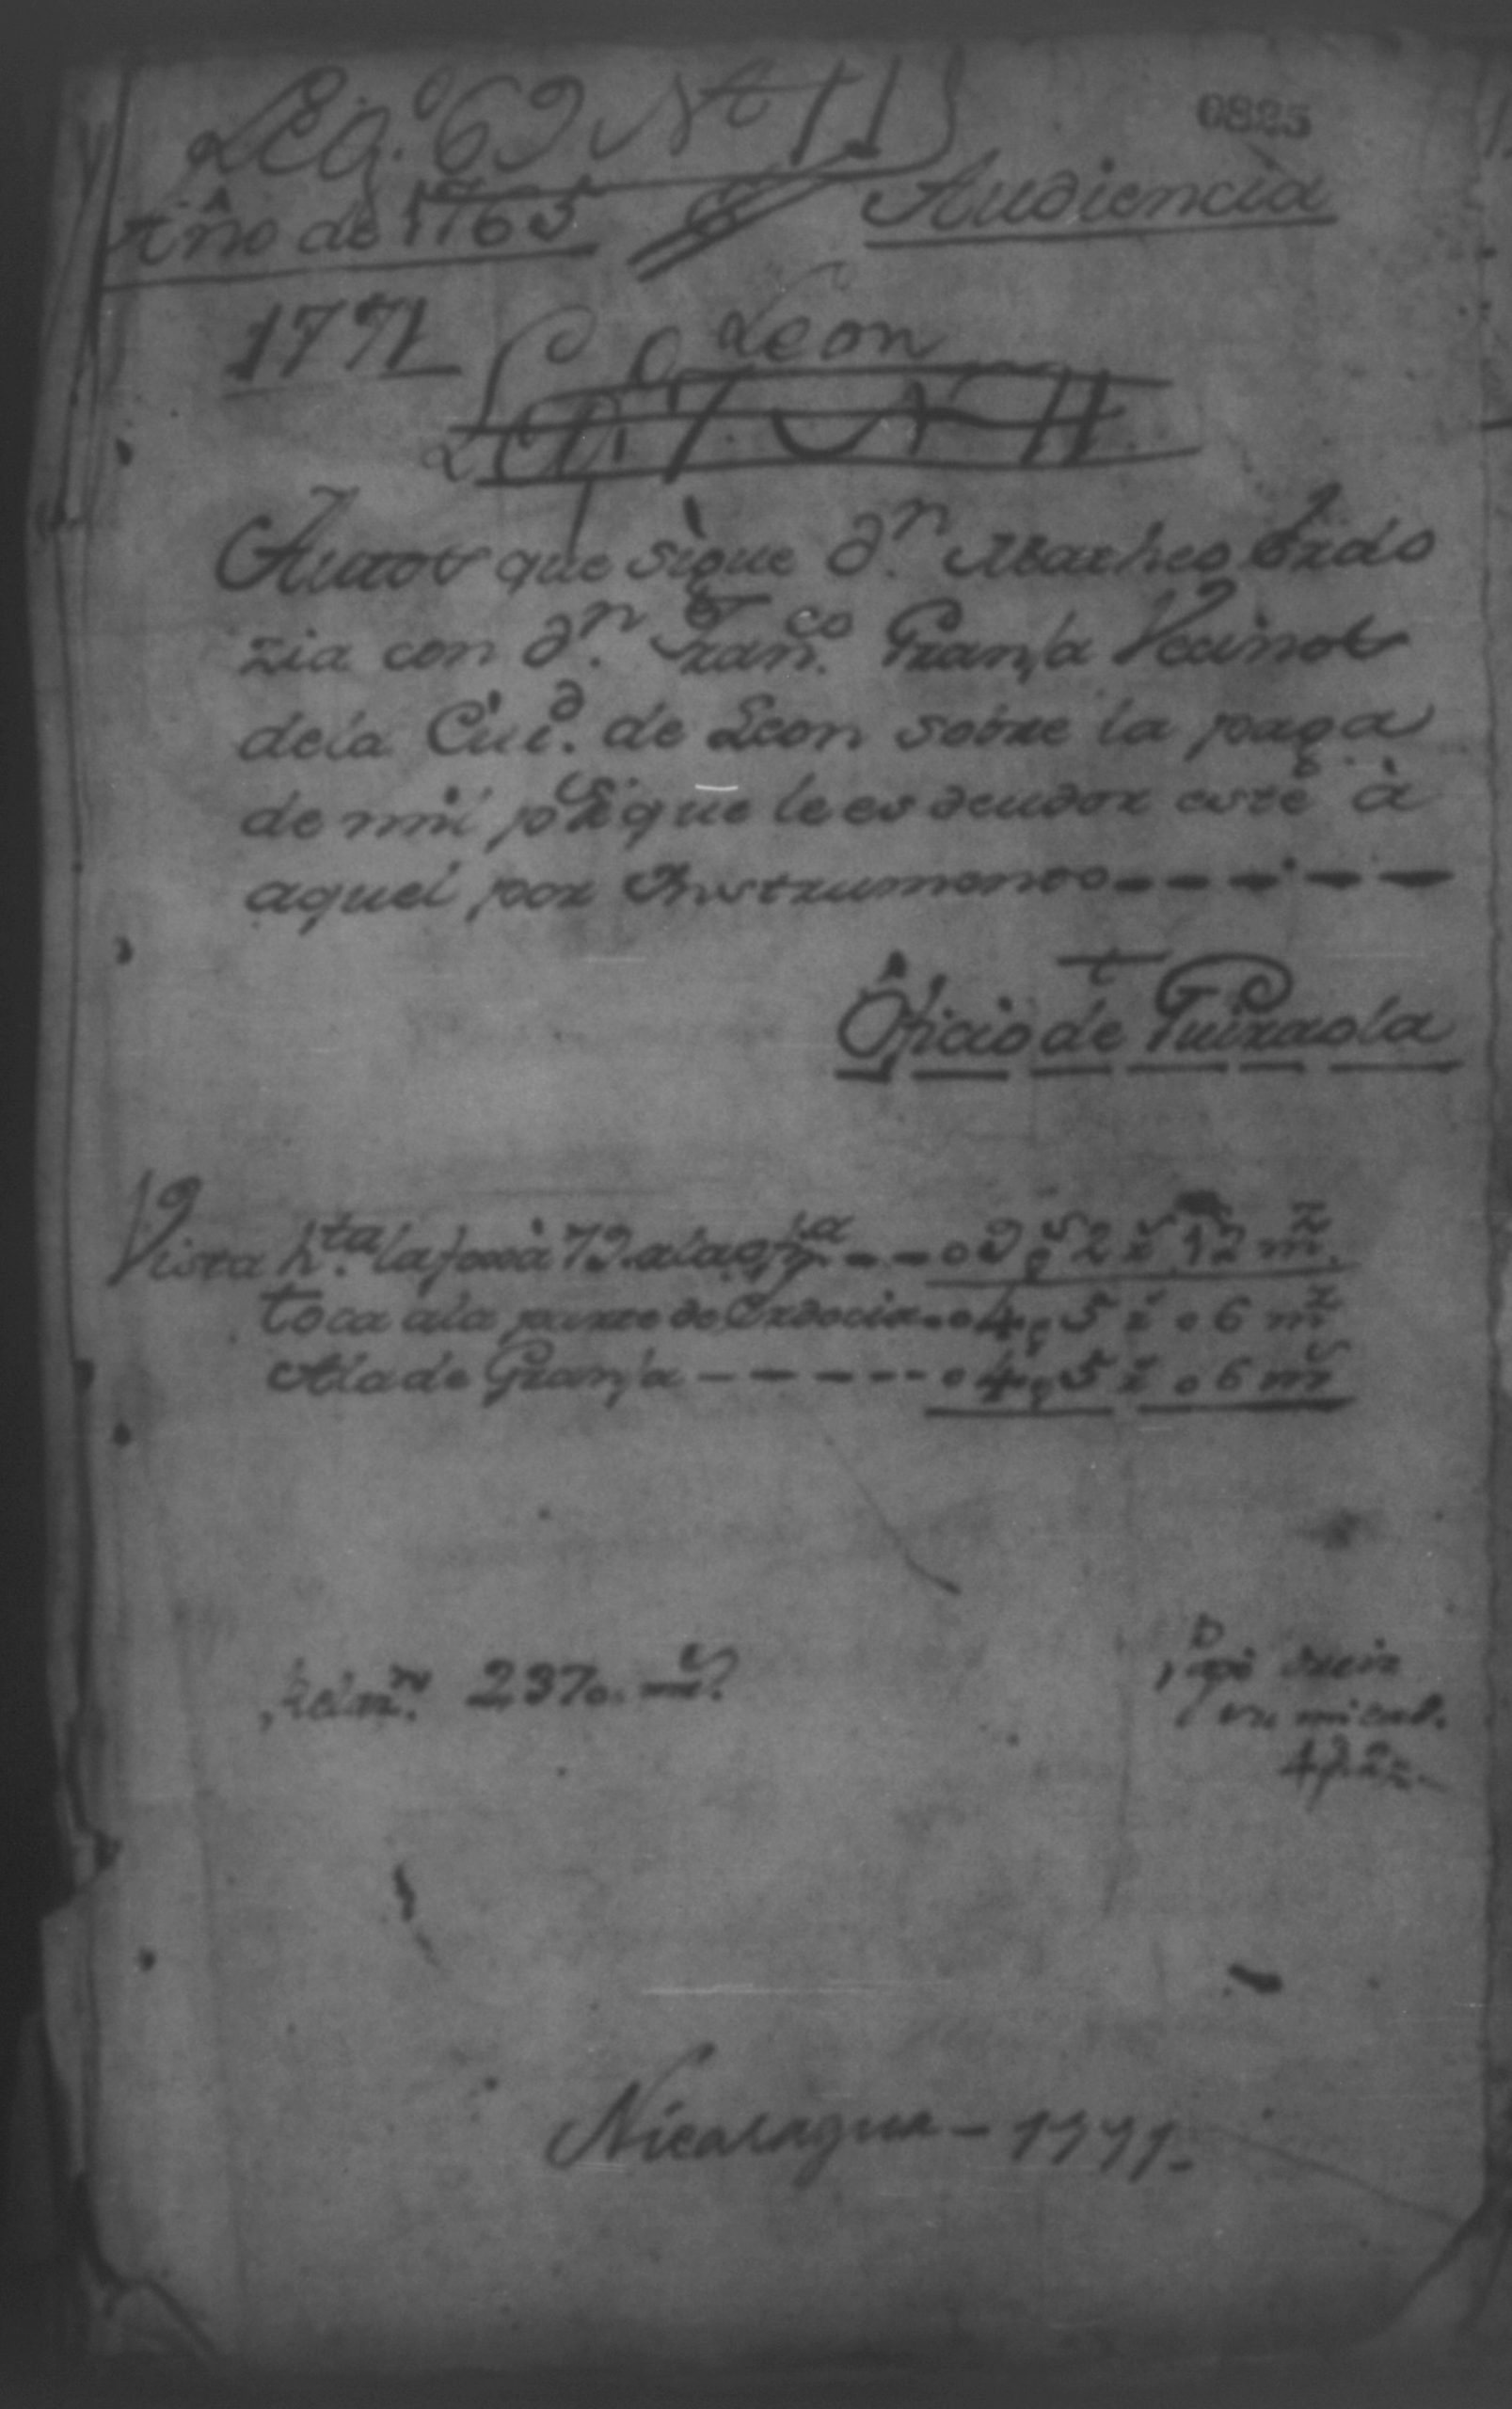 Leg.o 69 No 11
0825
Año de 1765
Audiencia
1771
Leon
Leg. 7 No 11
Autos que sigue Dn. Matheo Ordo
zia con Dn. Franco. Granja Vecinos
dela Ciud. de Leon sobre la paga
de mil ps. que le es deudor este à
aquel por Instrumento
Oficio de Guiraola
Vista hta. la foxa 79.
toca ala parte de Ordocia 04 ps 5 rs 06 ms
Ala de Granja 04 ps 5 rs 06 ms
2370. ms.
Nicaragua - 1771.